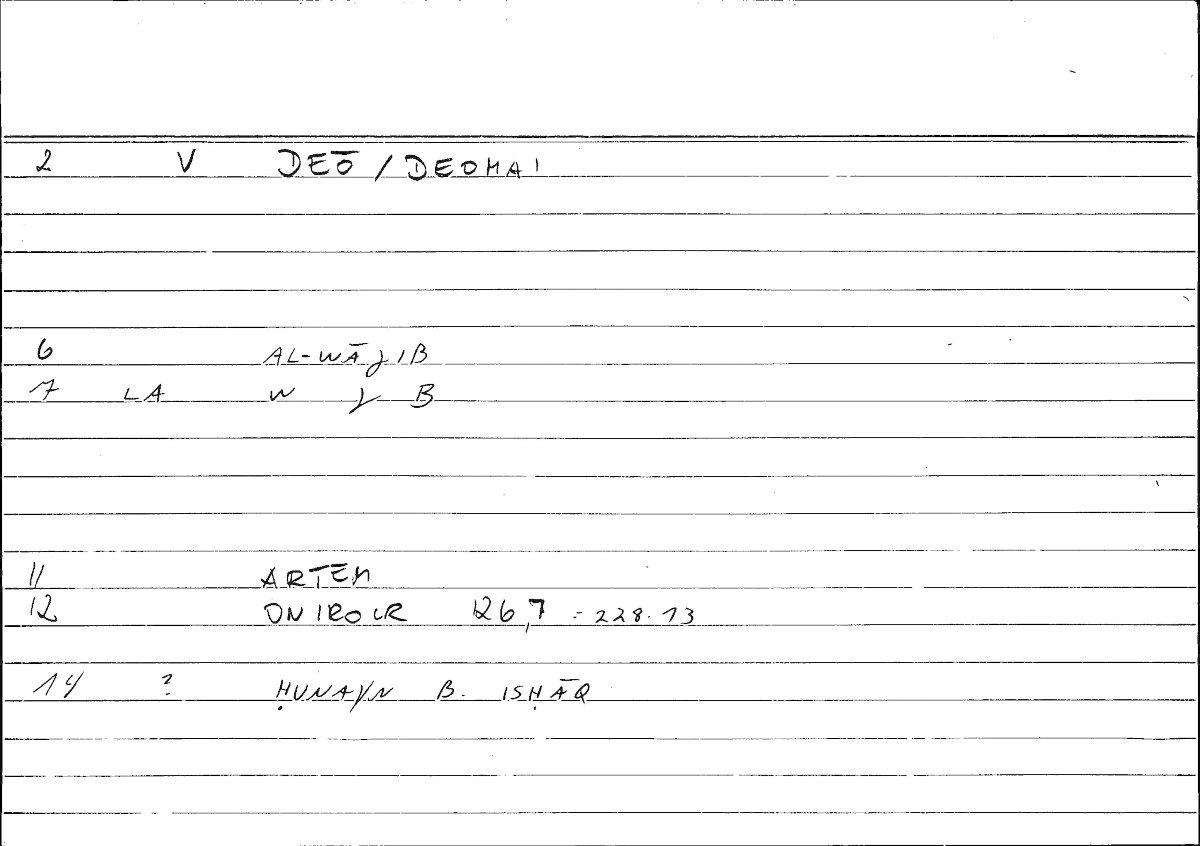 2 V DEŌ / DEOMAI
6 AL-WĀJIB
7 LA W J B
11 ARTEM
12 ONIROCR 126,7 = 228.13
14 ? ḤUNAYN B. ISḤĀQ